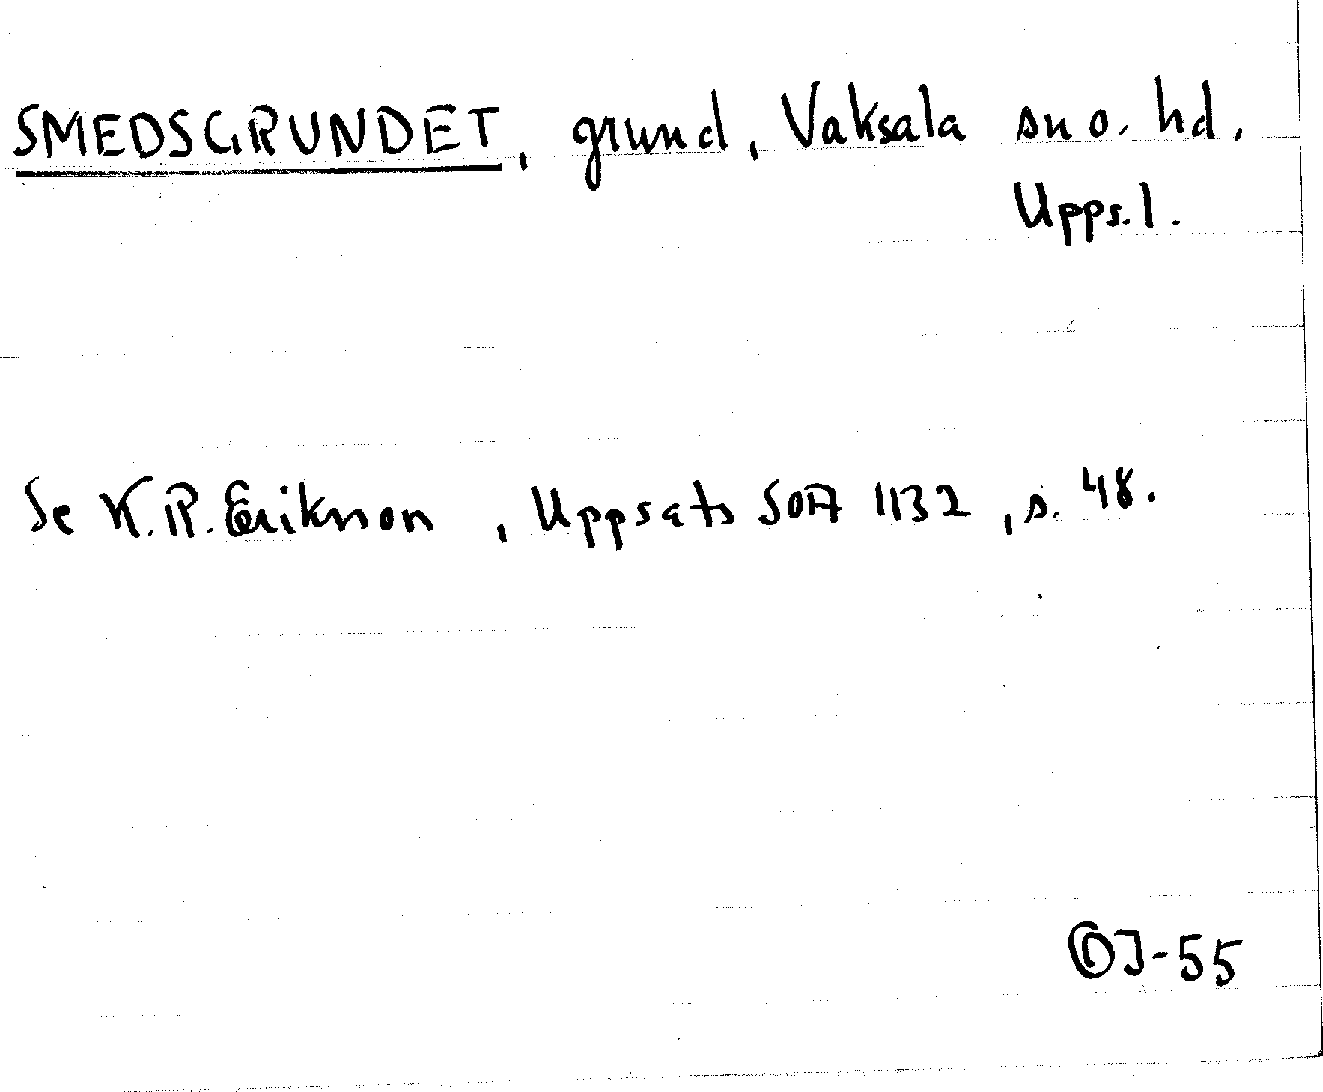 SMEDSGRUNDET, grund, Vaksala sn o. hd.
Upps.l.
Se K.R. Erikson, Uppsats SOA 1132, s. 48.
J-55